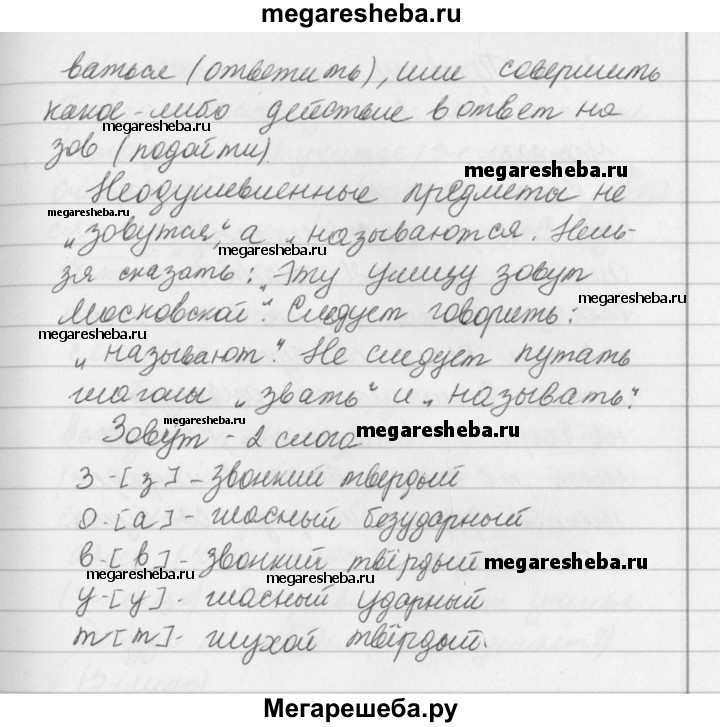 megaresheba.ru
ваться (ответить), или совершить
какое-либо действие в ответ на
megaresheba.ru
зов (подойти)
megaresheba.ru
Неодушевленные предметы не
megaresheba.ru
„зовутся“, а „называются. Нель-
megaresheba.ru
зя сказать: „Эту улицу зовут
megaresheba.ru
Московской“. Следует говорить:
megaresheba.ru
„называют“. Не следует путать
глаголы „звать“ и „называть“.
megaresheba.ru
Зовут - 2 слога
megaresheba.ru
З - [з] - звонкий твердый
о - [а] - гласный безударный
в - [в] - звонкий твёрдый
megaresheba.ru
megaresheba.ru
megaresheba.ru
у - [у] - гласный ударный
т - [т] - глухой твёрдый.
Мегарешеба.ру